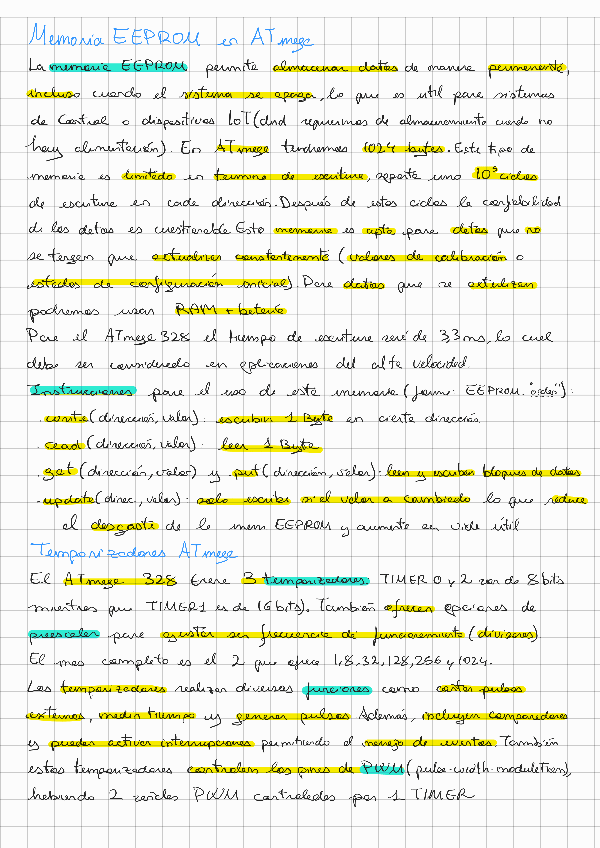 Memoria EEPROM en ATmega
La memoria EEPROM permite almacenar datos de manera permanente,
incluso cuando el sistema se apaga, lo que es util para sistemas
de Control o dispositivos IoT (dnd requerimos de almacenamiento cuando no
hay alimentación). En ATmega tendremos 1024 bytes. Este tipo de
memoria es limitado en termino de escritura, soporta unos 10⁵ ciclos
de escritura en cada dirección. Después de estos ciclos la confiabilidad
de los datos es cuestionable Esta memoria es apta para datos que no
se tengan que actualizar constantemente (valores de calibración o
estados de configuración inicial). Para datos que se actualizan
podremos usar RAM + batería
Para el ATmega 328 el tiempo de escritura será de 3,3 ms, lo cual
debe ser considerado en aplicaciones del alta velocidad.
Instrucciones para el uso de esta memoria (form: EEPROM.):
. write (dirección, valor): escubir 1 Byte en cierta dirección.
. read (dirección, valor): leer 1 Byte
. get (dirección, valor) y put (dirección, valor): leen y escriben bloques de datos
. update (direc, valor): solo escribe si el valor a cambiado lo que reduce
el desgaste de la mem EEPROM y aumenta su vida útil
Temporizadores ATmega
El ATmega 328 tiene 3 temporizadores. TIMER 0 y 2 son de 8 bits
mientras que TIMER1 es de 16 bits). También ofrecen opciones de
preescaler para ajustar ser frecuencia de funcionamiento (divisores)
El mas completo es el 2 que ofrece 1,8,32,128,256 y 1024.
Los temporizadores realizan diversas funciones como contar pulsos
externos, medir tiempo y generar pulsos Además, incluyen comparadores
y pueden activar interrupciones permitiendo el manejo de eventos. También
estos temporizadores controlan los pines de PWM (pulse-width-modulation),
habiendo 2 PWM controlados por 1 TIMER